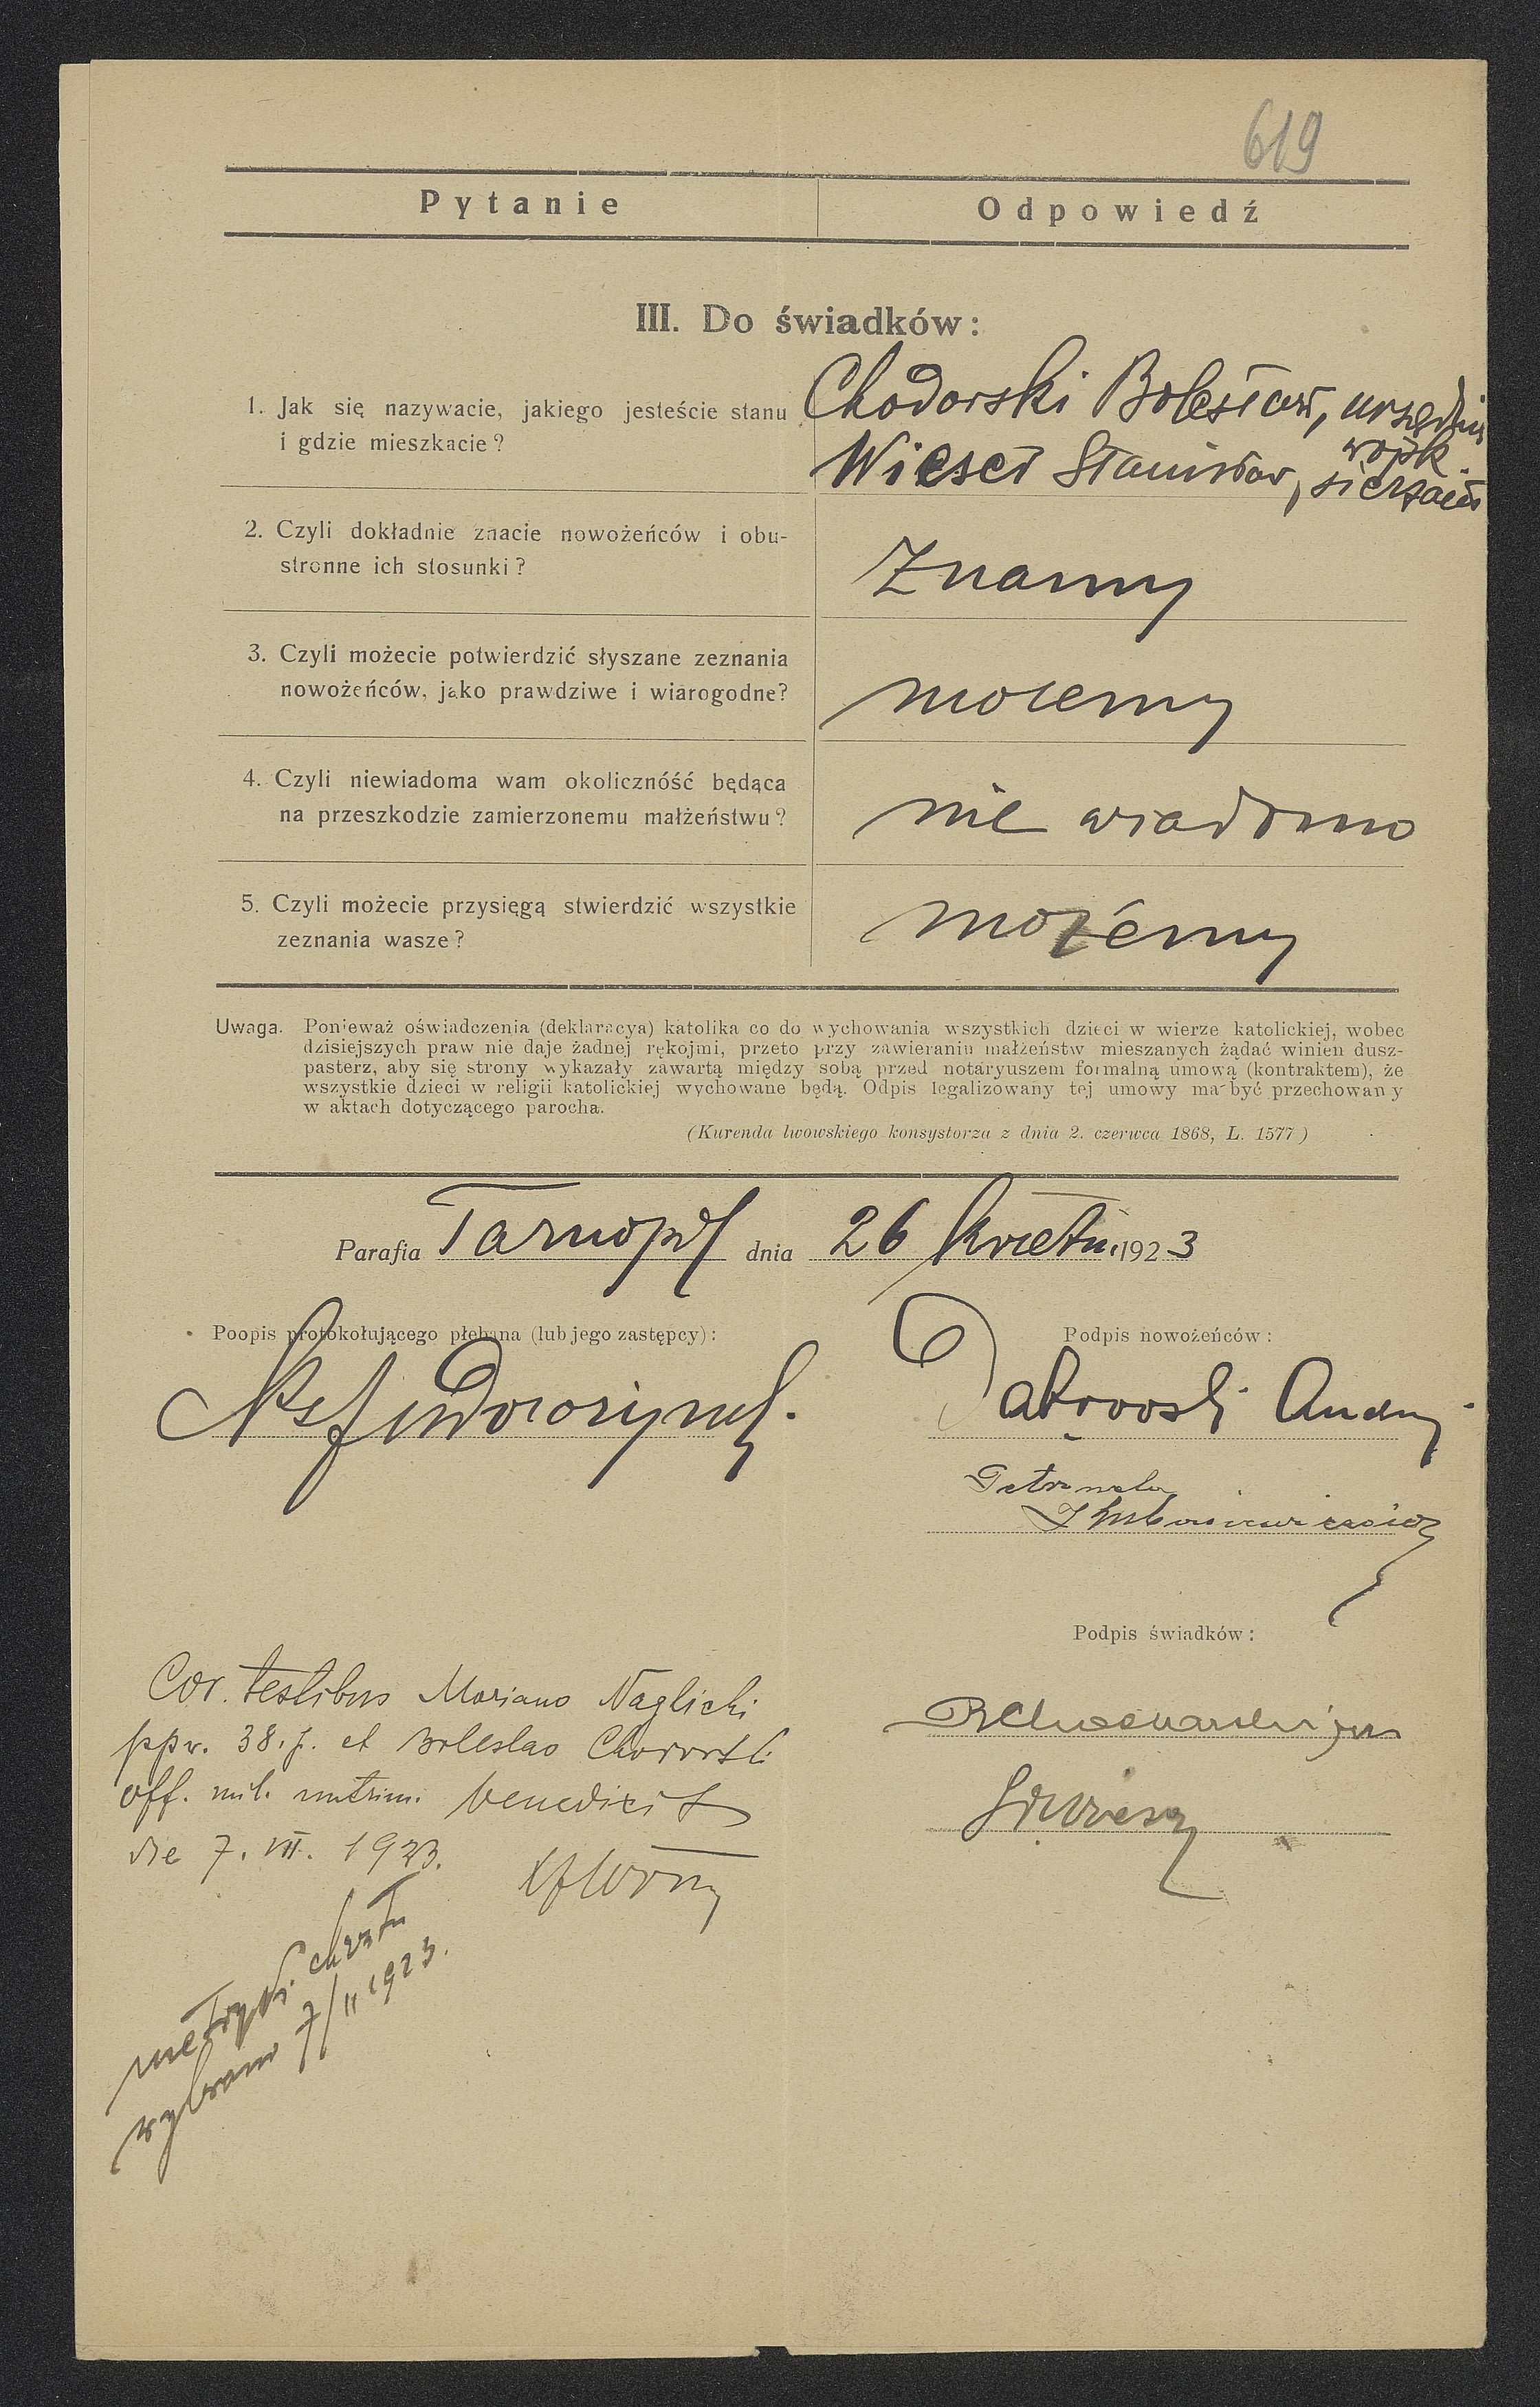 619
Pytanie
Odpowiedź
III. Do świadków:
1. Jak się nazywacie, jakiego jesteście stanu
i gdzie mieszkacie?
Chodorski Bolesław, urzędnik
wojsk
Wieseł Stanisław, sierżant
2. Czyli dokładnie znacie nowożeńców i obu-
stronne ich stosunki?
Znamy
3. Czyli możecie potwierdzić słyszane zeznania
nowożeńców, jako prawdziwe i wiarogodne?
możemy
4. Czyli niewiadoma wam okoliczńość będąca
na przeszkodzie zamierzonemu małżeństwu?
nie wiadomo
5. Czyli możecie przysięgą stwierdzić wszystkie
zeznania wasze?
możemy
Uwaga. Ponieważ oświadczenia (deklaracya) katolika co do wychowania wszystkich dzieci w wierze katolickiej, wobec
dzisiejszych praw nie daje żadnej rękojmi, przeto przy zawieraniu małżeństw mieszanych żądać winien dusz-
pasterz, aby się strony wykazały zawartą między sobą przed notaryuszem formalną umową (kontraktem), że
wszystkie dzieci w religii katolickiej wychowane będą. Odpis legalizowany tej umowy ma być przechowany
w aktach dotyczącego parocha.
(Kurenda lwowskiego konsystorza z dnia 2. czerwca 1868, L. 1577)
Parafia Tarnopol dnia 26 kwietnia 1923
Poopis protokołującego plebana (lub jego zastępcy):
Podpis nowożeńców:
Dąbrowski Andrzej
Petronela
Podpis świadków:
Cor. testibus Mariano Naglicki
ppor. 38. p. et Boleslao Chodorski
off. mil. matrim. benedixit
die 7. VII. 1923.
metryki chrztu
wybrano 7/II 1923.